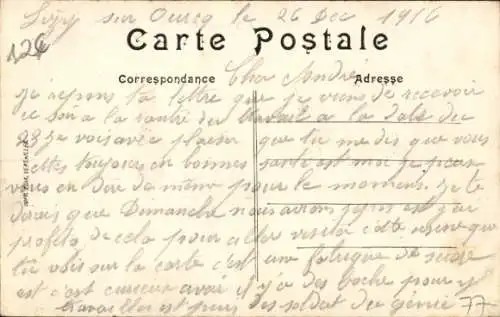 Lizy sur Ourcq le 26 Dec 1916
126
Carte Postale
Correspondance
Adresse
Cher André
je repons ta lettre que je viens de recevoir
ce soir a la rentré du travail a la date du
23 je vois avec plaisir que tu me dis que vous
ettes toujours en bonnes santé est moi je peux
vous en dire de même pour le moment. je te
dirais que Dimanche nous avions repos est j'ai
profité de cela pour aller visiter cette usine que
tu vois sur la carte c'est une fabrique de sucre
est c'est curieux avoir il y a des boche pour y
travailler est puis des soldat du genie
77